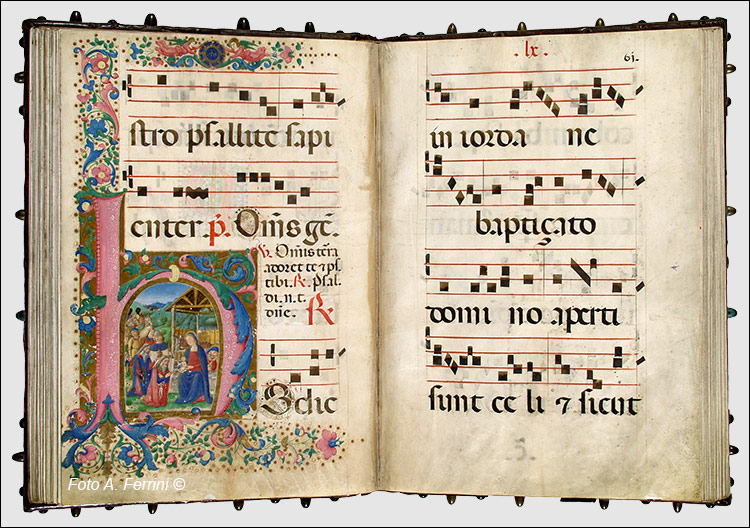 stro psallitē sapi
enter. p̄. Om̄s gē.
℣. Om̄s terra
adoret te ⁊ ps
tibi. ℟. psal
di. n. t.
dn̄e. ℟
Hodie
lx.
61.
in iorda ne
baptiçato
domi no aperti
sunt ce li ⁊ sicut
5.
Foto A. Ferrini ©